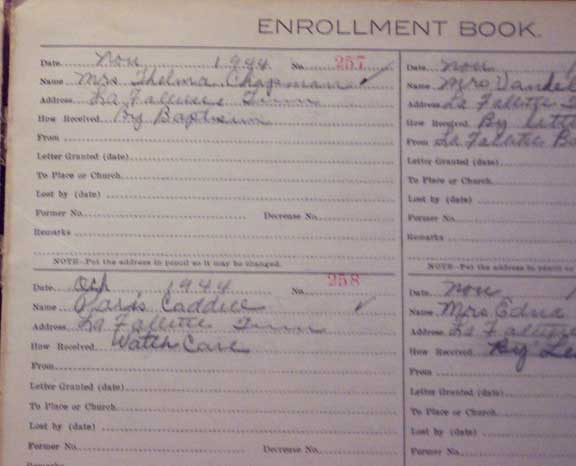 ENROLLMENT BOOK.
Date Nov 1944 No. 257
Name Mrs. Thelma Chapman ✓
Address La Follette Tenn
How Received By Baptism
From
Letter Granted (date)
To Place or Church
Lost by (date)
Former No. Decrease No.
Remarks
NOTE—Put the address in pencil so it may be changed.
Date Nov
Name Mrs
Address La Follette
How Received By Lette
From La Follette Ba
Letter Granted (date)
To Place or Church
Lost by (date)
Former No.
Remarks
NOTE—Put the address in pencil so
Date Oct 1944 No. 258
Name Paris ✓
Address La Follette Tenn
How Received Watch Care
From
Letter Granted (date)
To Place or Church
Lost by (date)
Former No. Decrease No.
Remarks
Date Nov
Name Mrs Edna
Address La Follette
How Received By Le
From
Letter Granted (date)
To Place or Church
Lost by (date)
Former No.